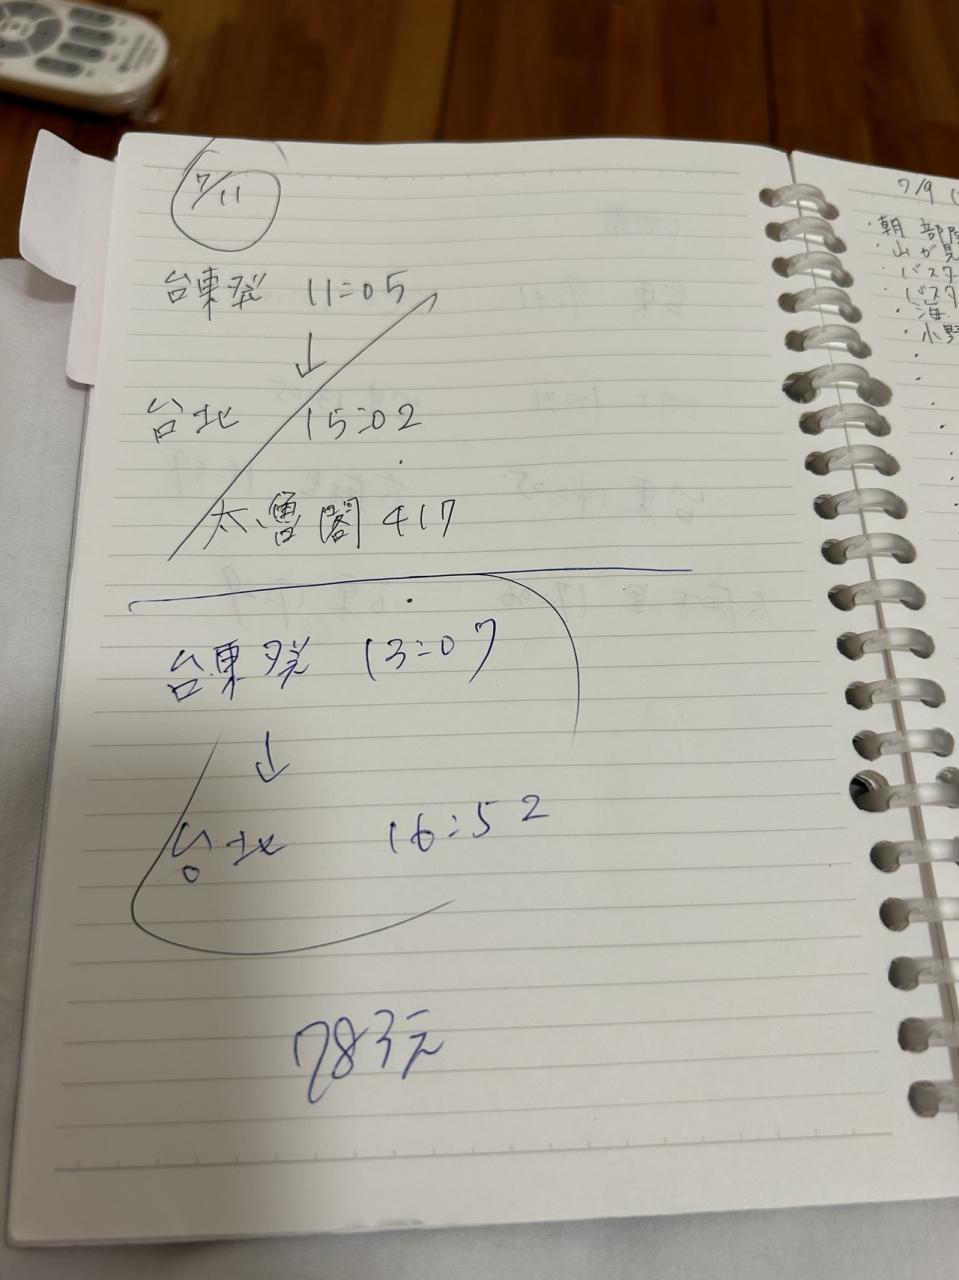 7/11
台東発 11:05
↓
台北 15:02
太魯閣 417
台東発 13:07
↓
台北 16:52
783元
7/9 (
・朝 部屋
・山が見
・バスタ
・バスタ
・海
・小野